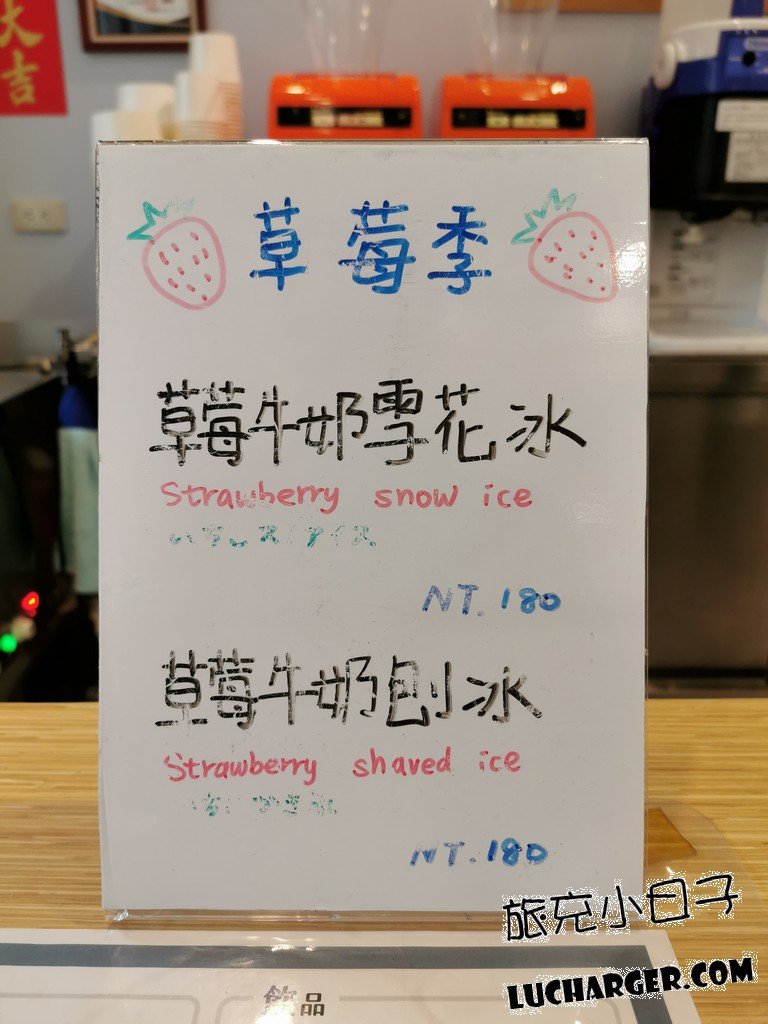 大吉
草莓季
草莓牛奶雪花冰
Strawberry snow ice
NT.180
草莓牛奶刨冰
Strawberry shaved ice
NT.180
旅充小日子
LUCHARGER.COM
飲品